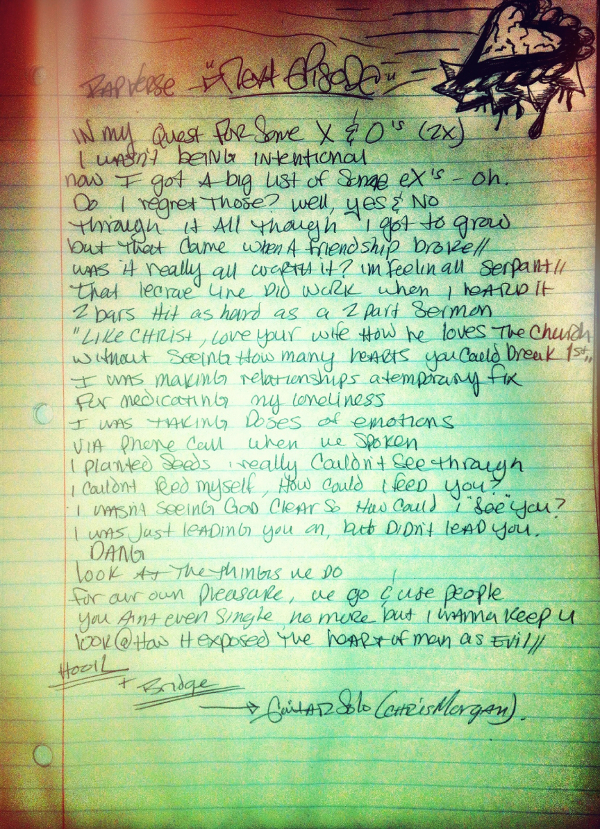 RAP VERSE - "Next Episode"
IN my Quest For Some X & O's (2x)
I wasn't being intentional
now I got A big list of Some eX's - oh.
Do I regret those? well, yes & No
Through it All though I got to grow
but that Came when A friendship broke//
was it really all worth it? im feelin all Serpant//
That lecrae line Did Work when I heard it
2 bars Hit as hard as a 2 part Sermon
"Like CHRIST, Love your wife How he loves The Church
without Seeing How many hearts you Could break 1st,,
I was making relationships a temporary fix
For medicating my loneliness
I was taking Doses of emotions
VIA Phone Call when we Spoken
I planted Seeds i really Couldn't See through
I Couldnt feed myself, How Could i feed you?
I wasn't Seeing GOD Clear So How Could i "See" you?
I was Just leading you on, but Didn't lead you.
DANG
look At The things we DO
for our own Pleasure, we go & use people
you Aint even Single no more but I wanna Keep u
look @ How it exposed The heart of man as Evil//
Hook
+ Bridge
→ Guitar Solo (Chris Morgan).